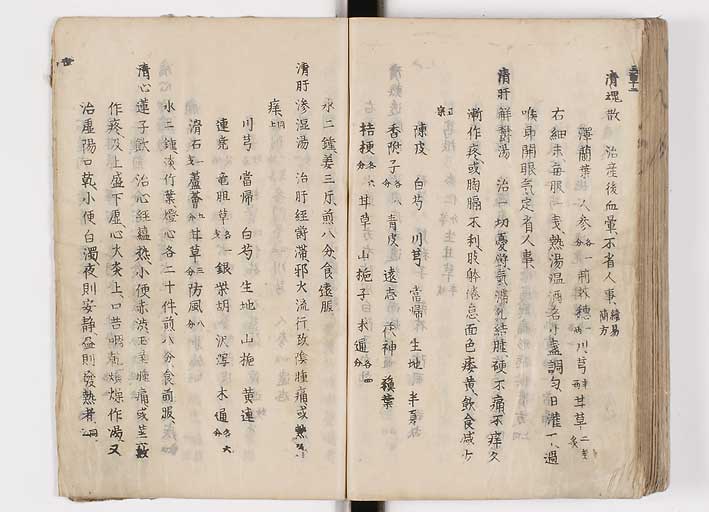 清魂散 治産後血暈不省人事 簡易方
澤蘭葉 人参 各一 荊芥穂 一 川芎 半 甘草 二
右細末毎服一戋熱湯温酒各小盞調勻日灌下過
喉耳開眼気定省人事
清肝解鬱湯 治一切憂鬱氣滞乳結腫硬不痛不痒久
漸作疼或胸膈不利肢躰倦怠面色痿黄飲食減少
正宗
陳皮 白芍 川芎 當帰 生地 半夏
香附子 青皮 遠志 茯神 蘓葉
桔梗 各六分 甘草 山梔子 木通 各四分
水二鐘姜三斤煎八分食遠服
清肝滲湿湯 治肝經欝滞邪火流行致陰腫痛或
痒 同上
川芎 當帰 白芍 生地 山梔 黄連
連尭 竜胆草 各一戋 銀柴胡 沢瀉 木通 各六分
滑石 一戋 蘆薈 甘草 三分 防風 八分
水二鐘淡竹葉燈心各二十件煎八分食前服
清心蓮子飲 治心經蘊熱小便赤渋玉茎腫痛或茎竅
作疼及上盛下虚心大炎上口苦咽乾煩燥作渇又
治虚陽口乾小便白濁夜則安静昼則発熱者 同上